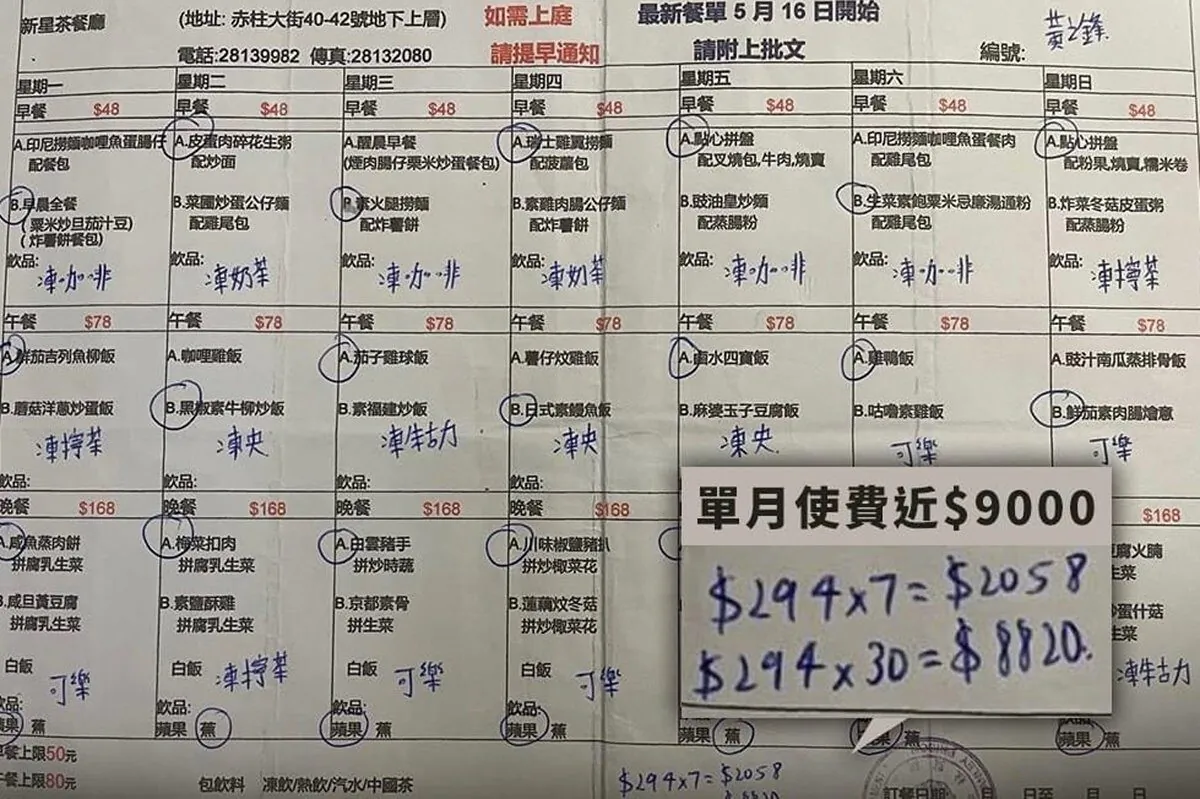 新星茶餐廳 (地址: 赤柱大街40-42號地下上層) 如需上庭 最新餐單 5 月 16 日開始 黃之鋒
電話:28139982 傳真:28132080 請提早通知 請附上批文 編號:
星期一 星期二 星期三 星期四 星期五 星期六 星期日
早餐 $48 早餐 $48 早餐 $48 早餐 $48 早餐 $48 早餐 $48 早餐 $48
A.印尼撈麵咖哩魚蛋腸仔 A.皮蛋肉碎花生粥 A.醒晨早餐 A.瑞士雞翼撈麵 A.點心拼盤 A.印尼撈麵咖哩魚蛋餐肉 A.點心拼盤
配餐包 配炒面 (煙肉腸仔粟米炒蛋餐包) 配菠蘿包 配叉燒包,牛肉,燒賣 配雞尾包 配粉果,燒賣,糯米卷
B.早晨全餐 B.菜圃炒蛋公仔麵 B.素火腿撈麵 B.素雞肉腸公仔麵 B.豉油皇炒麵 B.生菜素鮑粟米忌廉湯通粉 B.炸菜冬菇皮蛋粥
(粟米炒旦茄汁豆) 配雞尾包 配炸薯餅 配炸薯餅 配蒸腸粉 配蒸腸粉
(炸薯餅餐包)
飲品: 飲品: 飲品: 飲品: 飲品: 飲品: 飲品:
凍咖啡 凍奶茶 凍咖啡 凍奶茶 凍咖啡 凍咖啡 凍檸茶
午餐 $78 午餐 $78 午餐 $78 午餐 $78 午餐 $78 午餐 $78 午餐 $78
A.鮮茄吉列魚柳飯 A.咖哩雞飯 A.茄子雞球飯 A.薯仔炆雞飯 A.鹵水四寶飯 A.雞鴨飯 A.豉汁南瓜蒸排骨飯
B.蘑菇洋蔥炒蛋飯 B.黑椒素牛柳炒飯 B.素福建炒飯 B.日式素鰻魚飯 B.麻婆玉子豆腐飯 B.咕嚕素雞飯 B.鮮茄素肉腸燴意
凍檸茶 凍央 凍朱古力 凍央 凍央 可樂 可樂
飲品: 飲品: 飲品: 飲品:
單月使費近$9000
晚餐 $168 晚餐 $168 晚餐 $168 晚餐 $168 $168
A.咸魚蒸肉餅 A.梅菜扣肉 A.白雲豬手 A.川味椒鹽豬扒 腐火腩
拼腐乳生菜 拼腐乳生菜 拼炒時蔬 拼炒椰菜花 生菜
$294x7=$2058
B.咸旦黃豆腐 B.素鹽酥雞 B.京都素骨 B.蓮藕炆冬菇 炒蛋什菇
拼腐乳生菜 拼腐乳生菜 拼生菜 拼炒椰菜花 生菜
$294x30=$8820.
白飯 白飯 白飯 白飯
可樂 凍檸茶 可樂 可樂 凍朱古力
飲品: 飲品: 飲品: 飲品: 飲品:
蘋果 蕉 蘋果 蕉 蘋果 蕉 蘋果 蕉 蘋果 蕉 蘋果 蕉 蘋果 蕉
早餐上限50元
午餐上限80元 包飲料 凍飲/熱飲/汽水/中國茶 $294x7=$2058 訂餐日期: 日至 月 日
8820